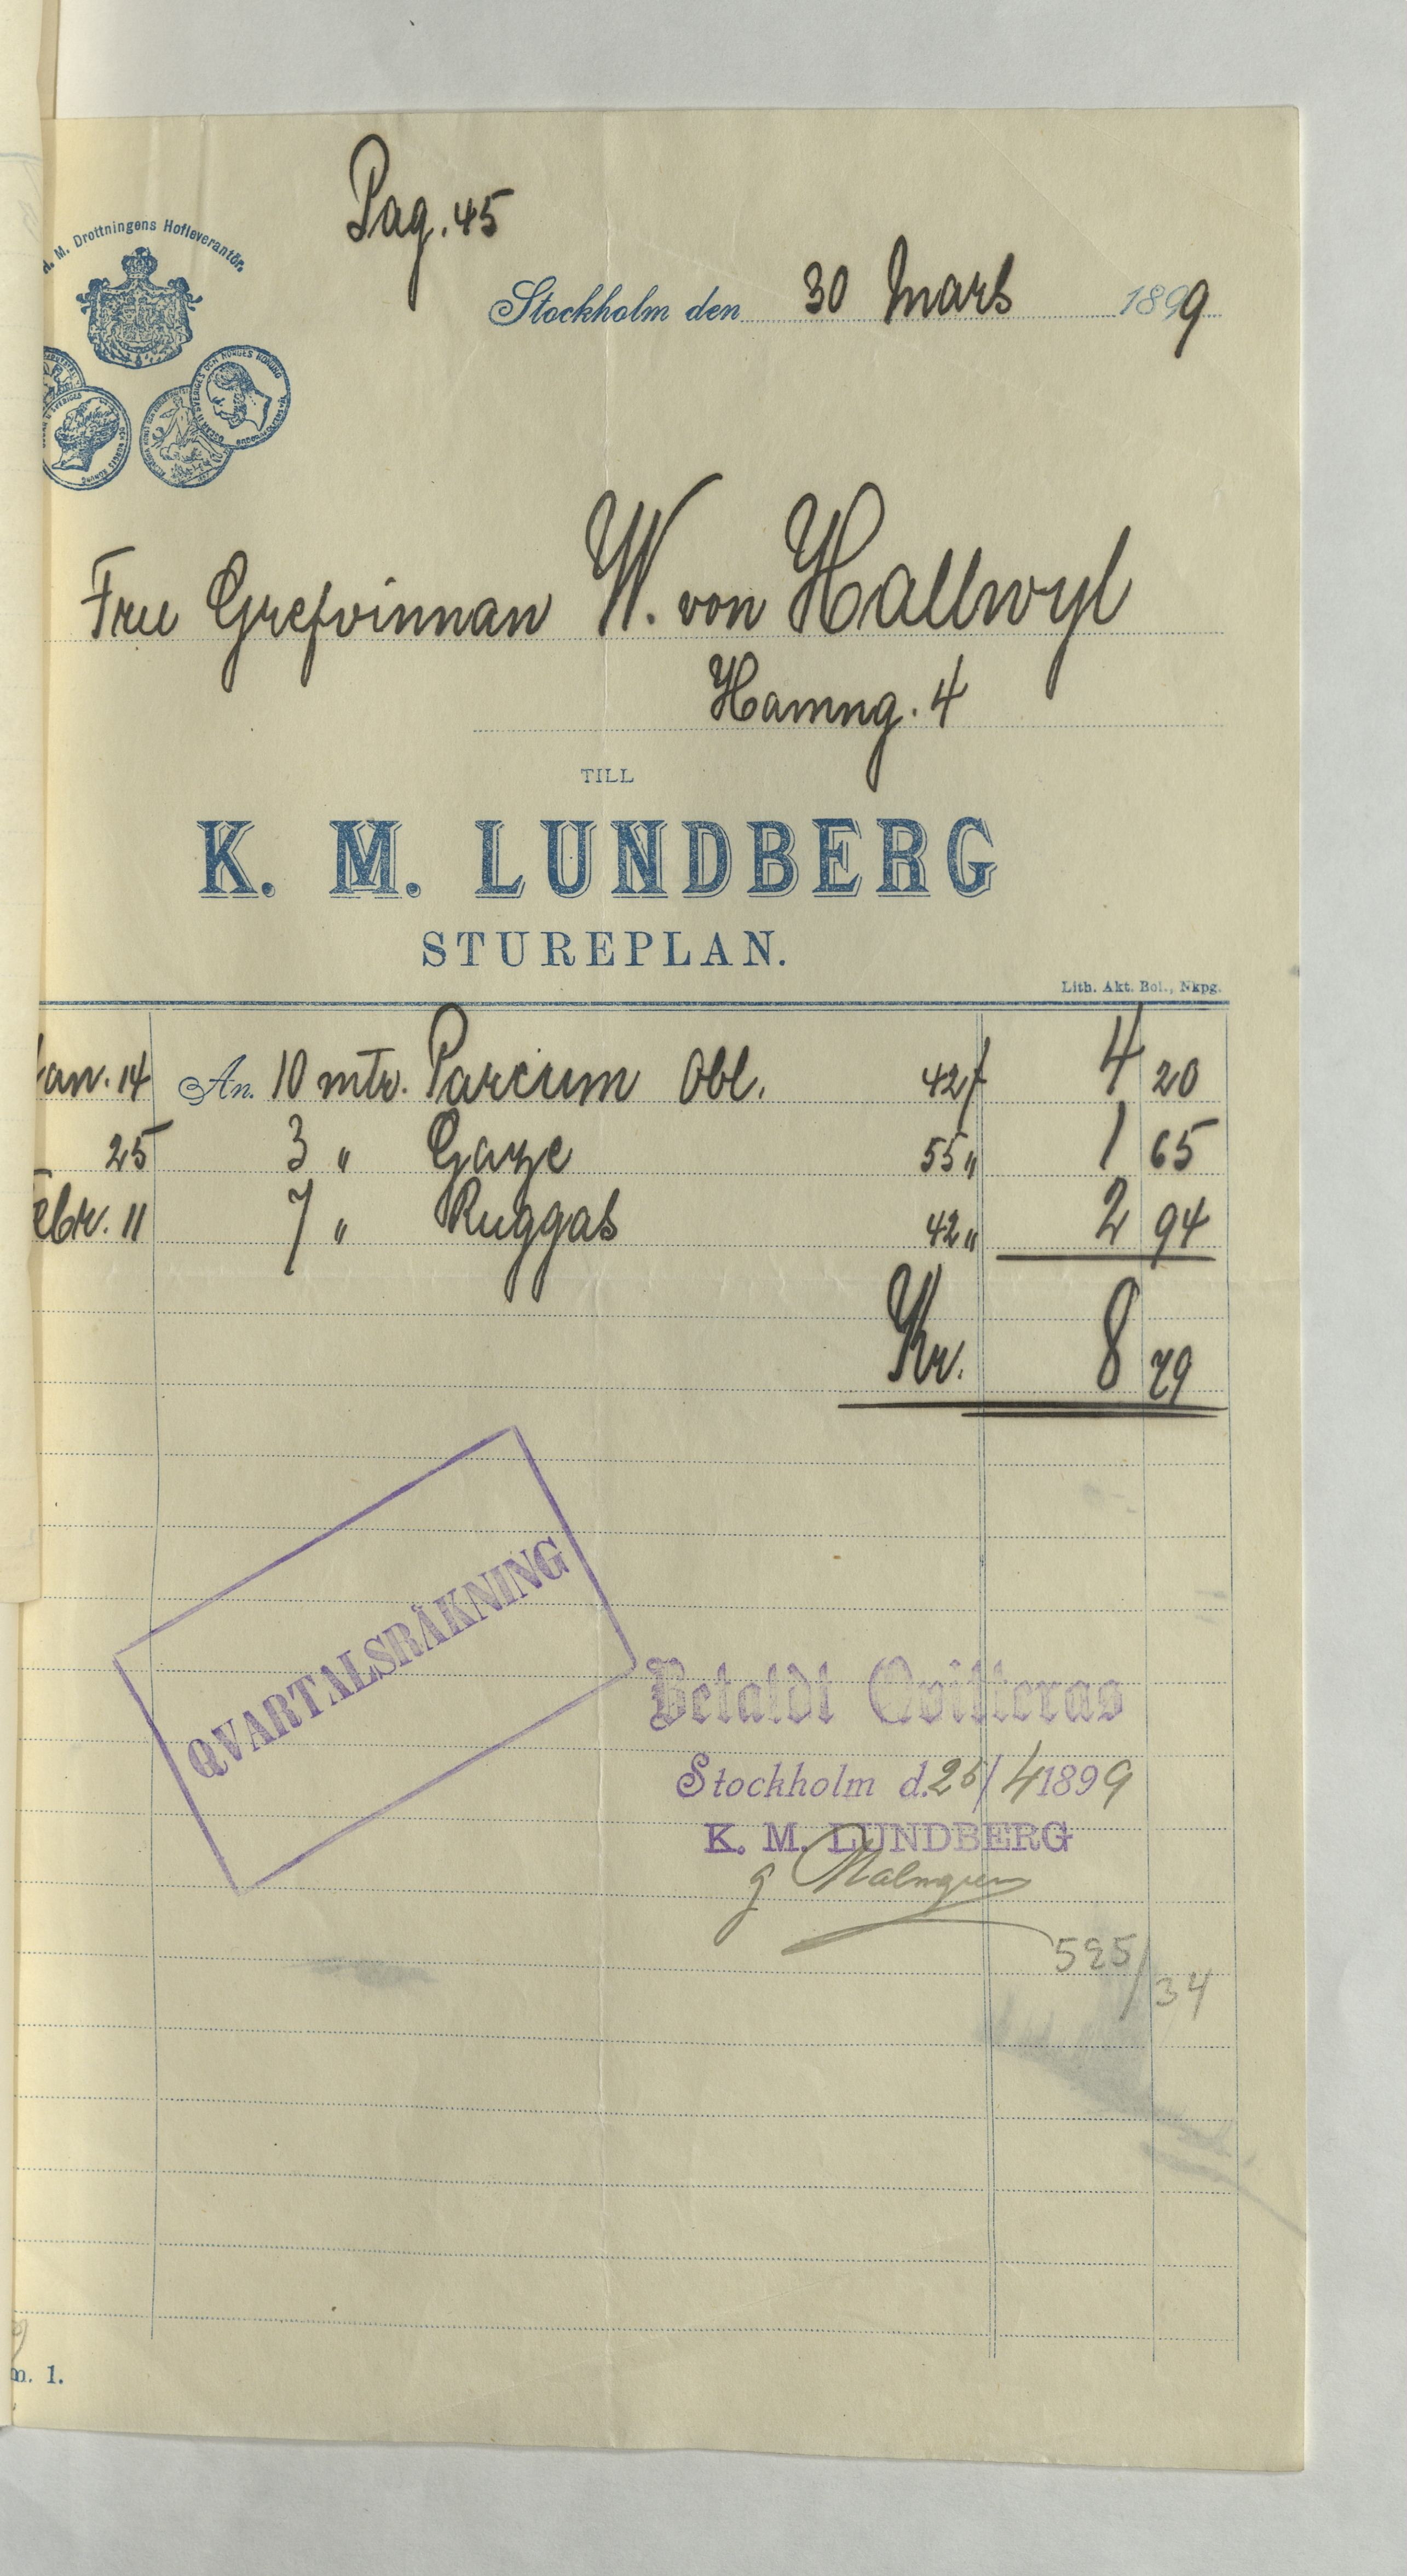 H. M. Drottningens Hofleverantör.
Pag. 45
Stockholm den 30 Mars 1899
Fru Grefvinnan W. von Hallwyl
Hamng. 4
TILL
K. M. LUNDBERG
STUREPLAN.
Lith. Akt. Bol., Nkpg.
Jan. 14 An. 10 mtr. Parcum Obl. 42/ 4 20
25 3 " Gaze 55 " 1 65
Febr. 11 7 " Ruggas 42 " 2 94
Kr. 8 79
QVARTALSRÄKNING
Betaldt Qvitteras
Stockholm d. 25/4 1899
K. M. LUNDBERG
g Malmgren
525/34
m. 1.